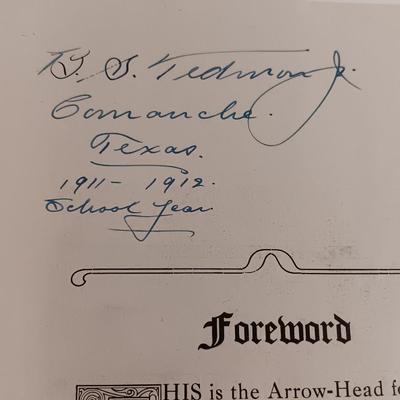 B. S. Tedmon Jr.
Comanche.
Texas.
1911 - 1912.
School Year
Foreword
THIS is the Arrow-Head fo